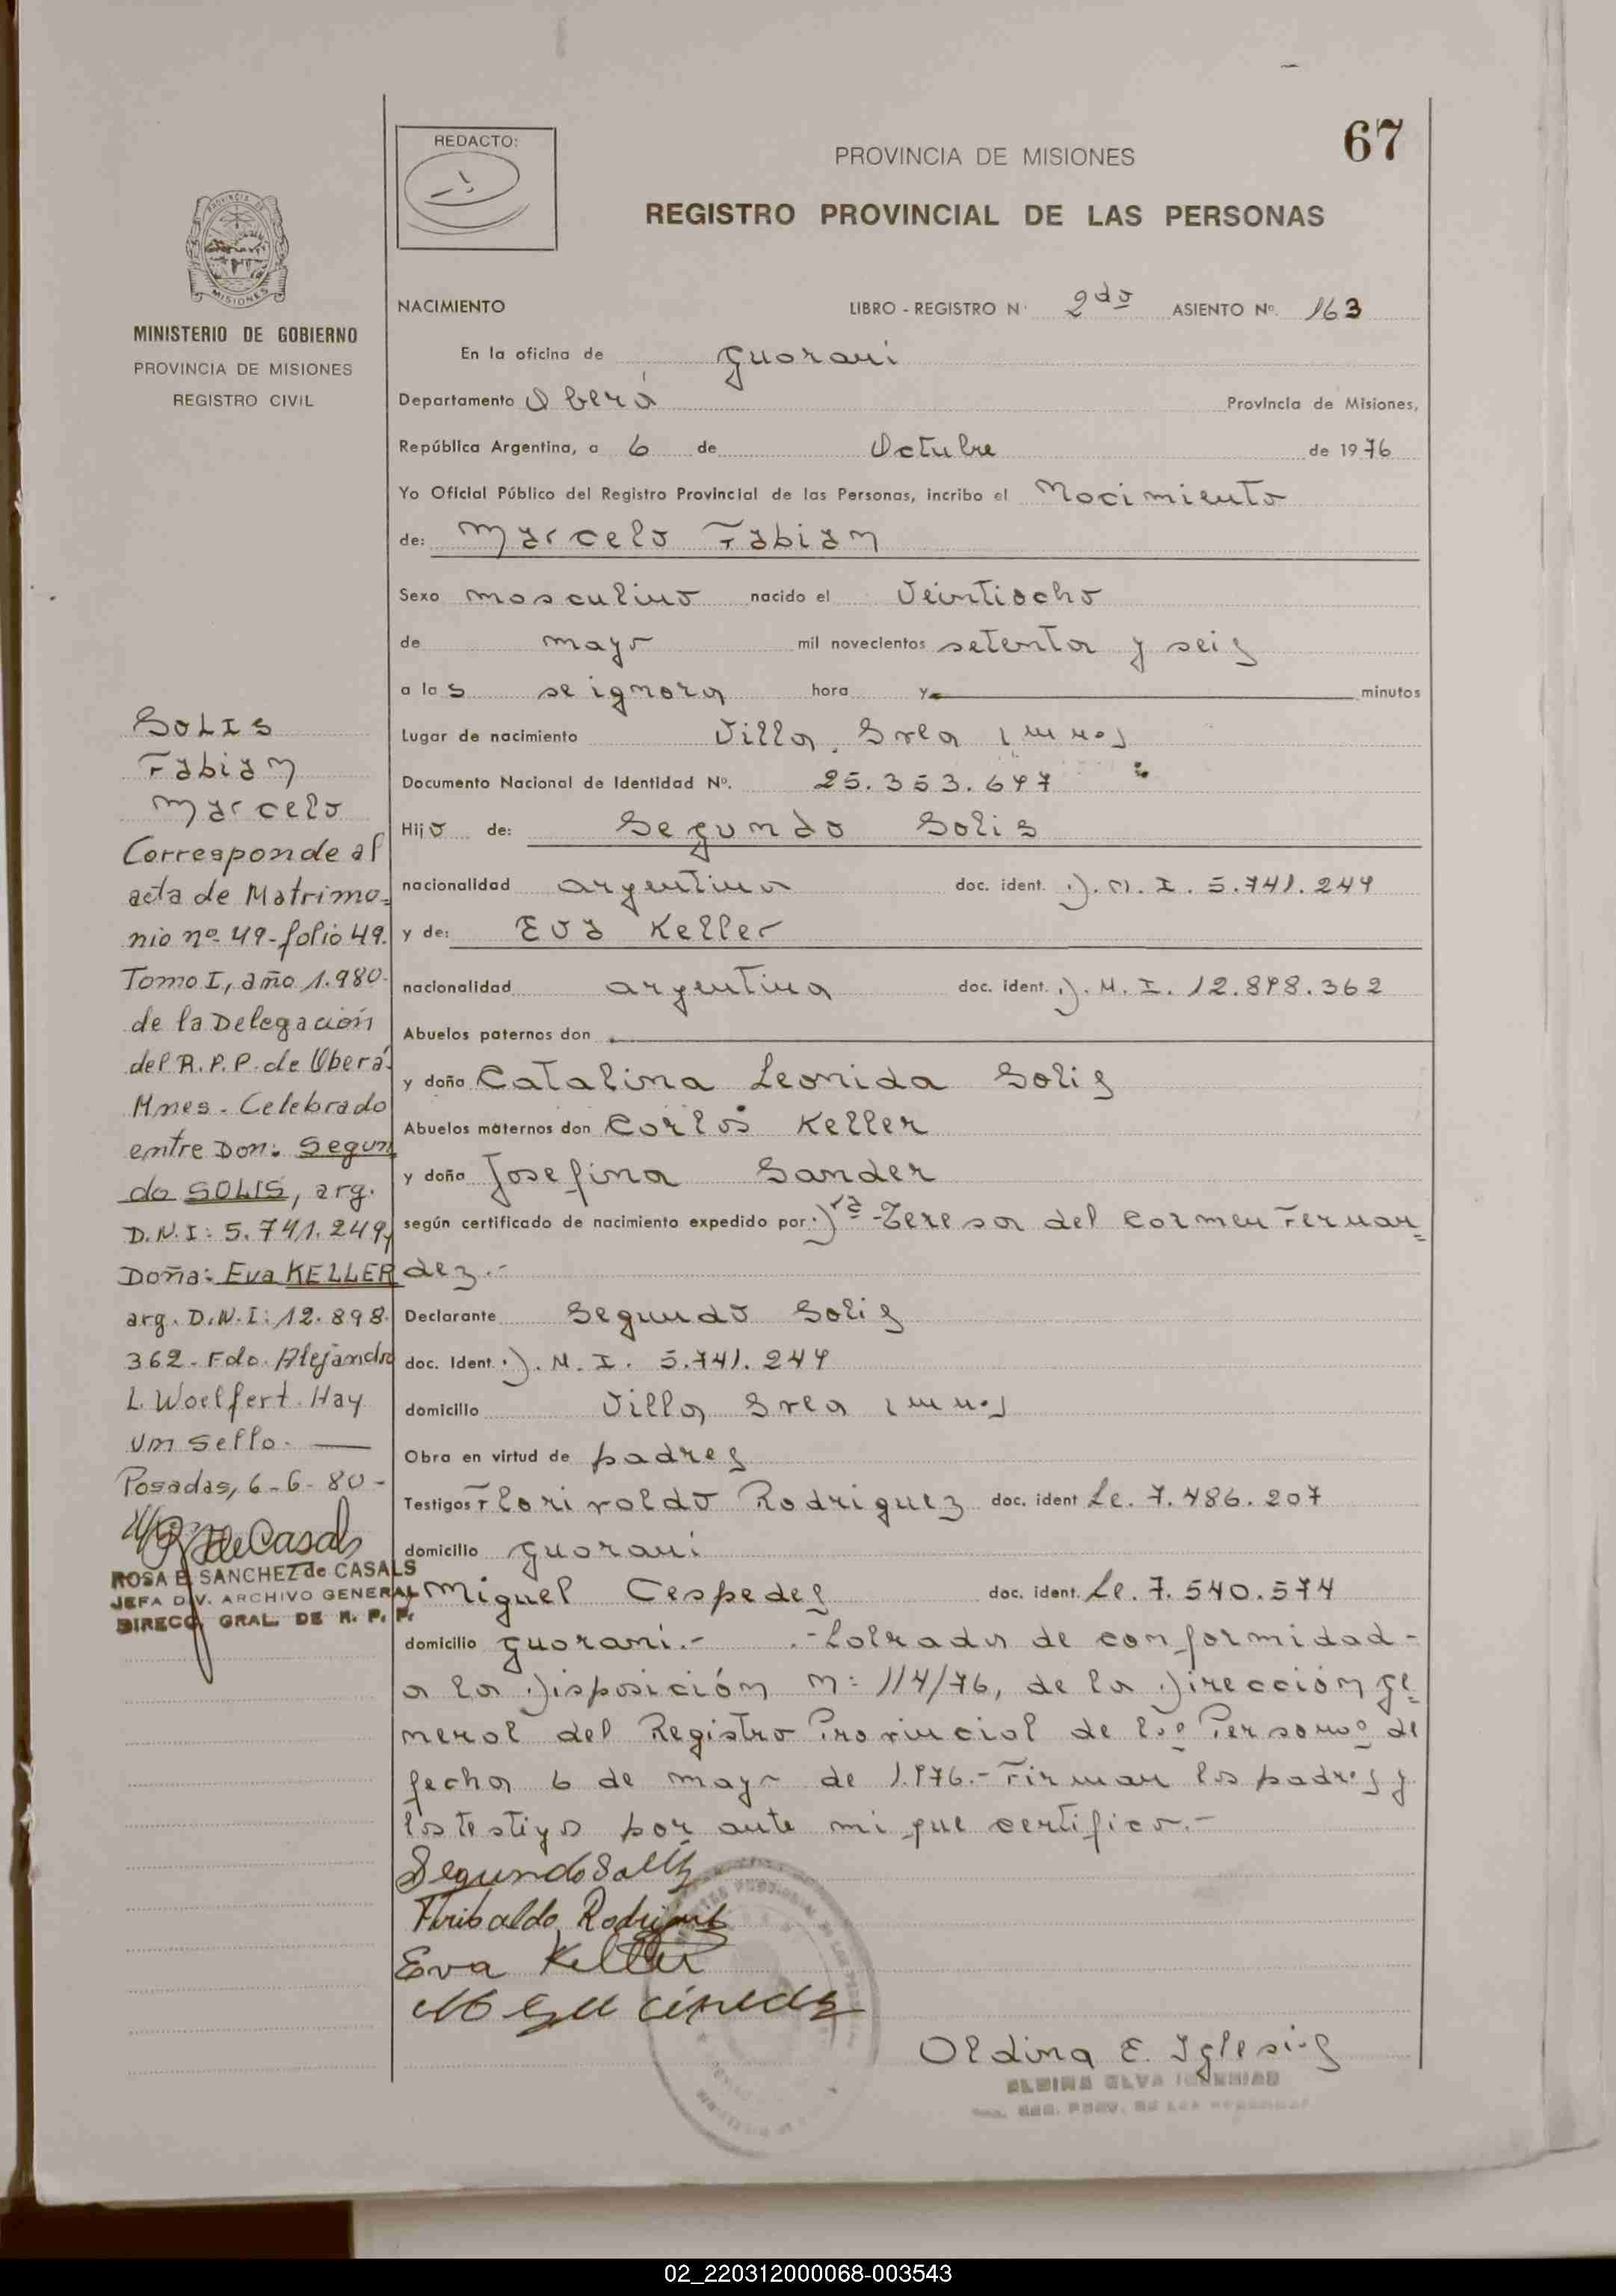 67
REDACTO:
PROVINCIA DE MISIONES
REGISTRO PROVINCIAL DE LAS PERSONAS
MISIONES
MINISTERIO DE GOBIERNO
PROVINCIA DE MISIONES
REGISTRO CIVIL
NACIMIENTO LIBRO - REGISTRO Nº 2do ASIENTO Nº. 163
En la oficina de Guarani
Departamento Oberá Provincia de Misiones,
República Argentina, a 6 de Octubre de 1976
Yo Oficial Público del Registro Provincial de las Personas, incribo el Nacimiento
de: Marcelo Fabian
Sexo masculino nacido el Veintiocho
de mayo mil novecientos setenta y seis
a las se ignora hora y minutos
Lugar de nacimiento Villa Svea (Mnes)
Documento Nacional de Identidad Nº. 25.353.647
Hijo de: Segundo Solis
nacionalidad argentina doc. ident. D.N.I. 5.741.249
y de: Eva Keller
nacionalidad argentina doc. ident. D.N.I. 12.898.362
Abuelos paternos don
y doña Catalina Leonida Solis
Abuelos maternos don Carlos Keller
y doña Josefina Sander
según certificado de nacimiento expedido por: Dra Teresa del Carmen Fernan=
dez.-
Declarante Segundo Solis
doc. Ident. D.N.I. 5.741.249
domicilio Villa Svea (Mnes)
Obra en virtud de padres
Testigos Florivaldo Rodriguez doc. ident Le. 7.486.207
domicilio Guarani
Miguel Cespedes doc. ident. Le. 7.540.574
domicilio Guarani.- .-Labrada de conformidad-
a la Disposición N: 114/76, de la Dirección ge=
neral del Registro Provincial de las Personas de
fecha 6 de mayo de 1.976.- Firman los padres y
los testigos por ante mi que certifico.-
Segundo Solis
Rodriguez
Eva Keller
Aldina E. Iglesias
SOLIS
Fabian
Marcelo
Corresponde al
acta de Matrimo=
nio nº 49-folio 49.
Tomo I, año 1.980.
de la Delegación
del R.P.P. de Oberá.
Mnes. Celebrado
entre Don: Segun
do SOLIS, arg.
D.N.I: 5.741.249,
Doña: Eva KELLER
arg. D.N.I: 12.898.
362. Fdo. Alejandro
L. Woelfert. Hay
um sello.
Posadas, 6-6-80-
de Casals
ROSA E. SANCHEZ de CASALS
JEFA DIV. ARCHIVO GENERAL
DIRECC. GRAL. DE R. P. P.
02_220312000068-003543